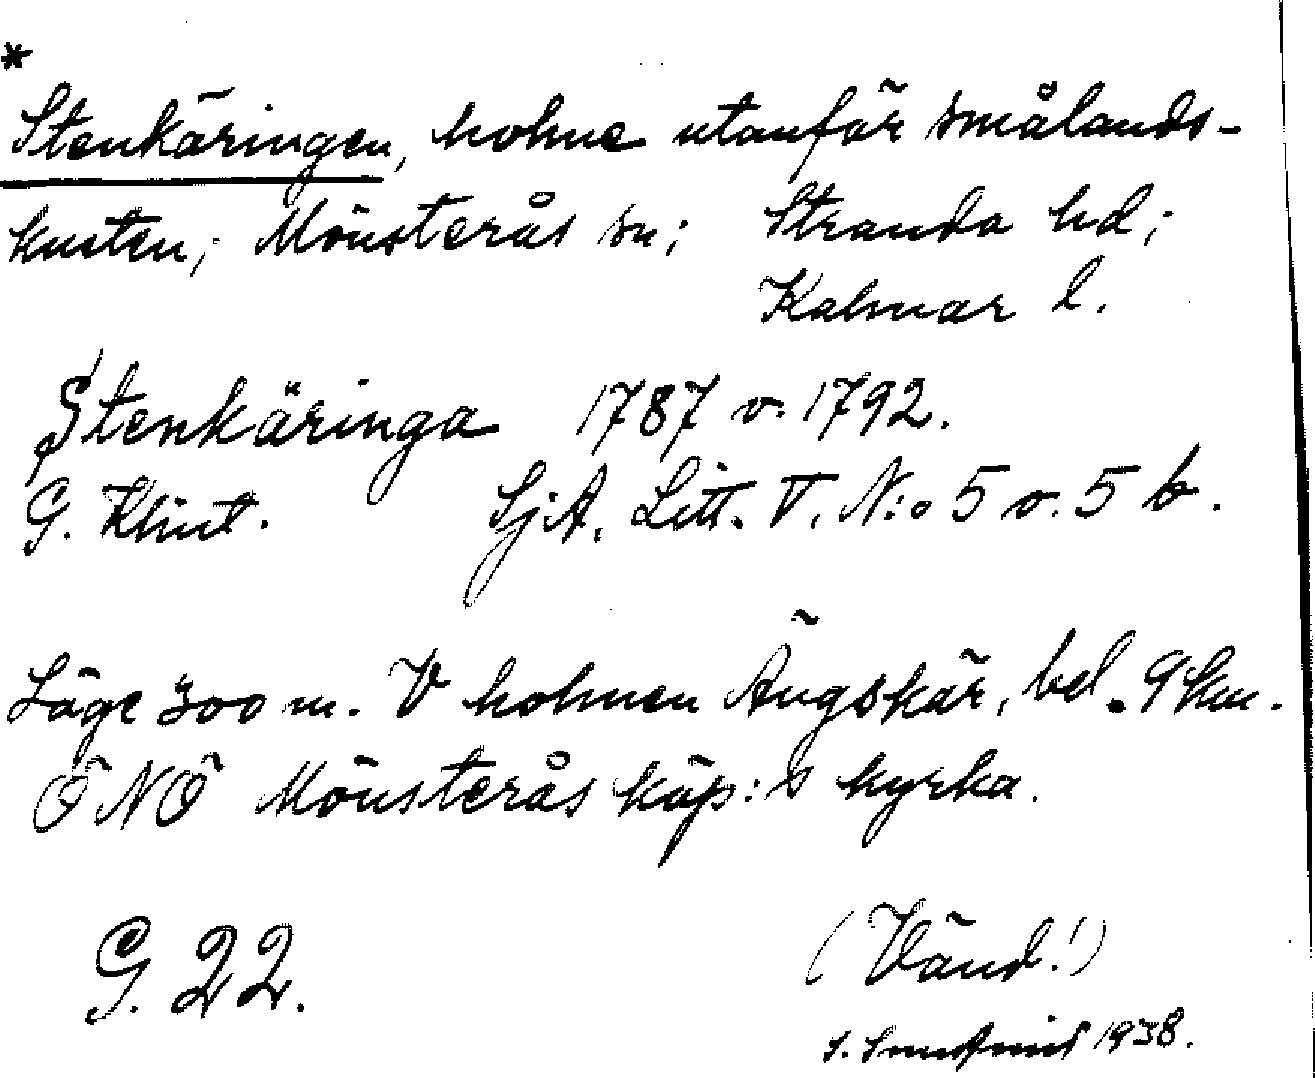 *
Stenkäringen, holme utanför smålands-
kusten; Mönsterås sn; Stranda hd;
Kalmar l.
Stenkäringa 1787 o. 1792.
G. Klint. SjA. Litt. V. N:o 5 o. 5 b.
Läge 300 m. V holmen Ängskär, bel. 9 km.
ÖNÖ Mönsterås köp:s kyrka.
G. 22.
(Vänd!)
S. 1938.